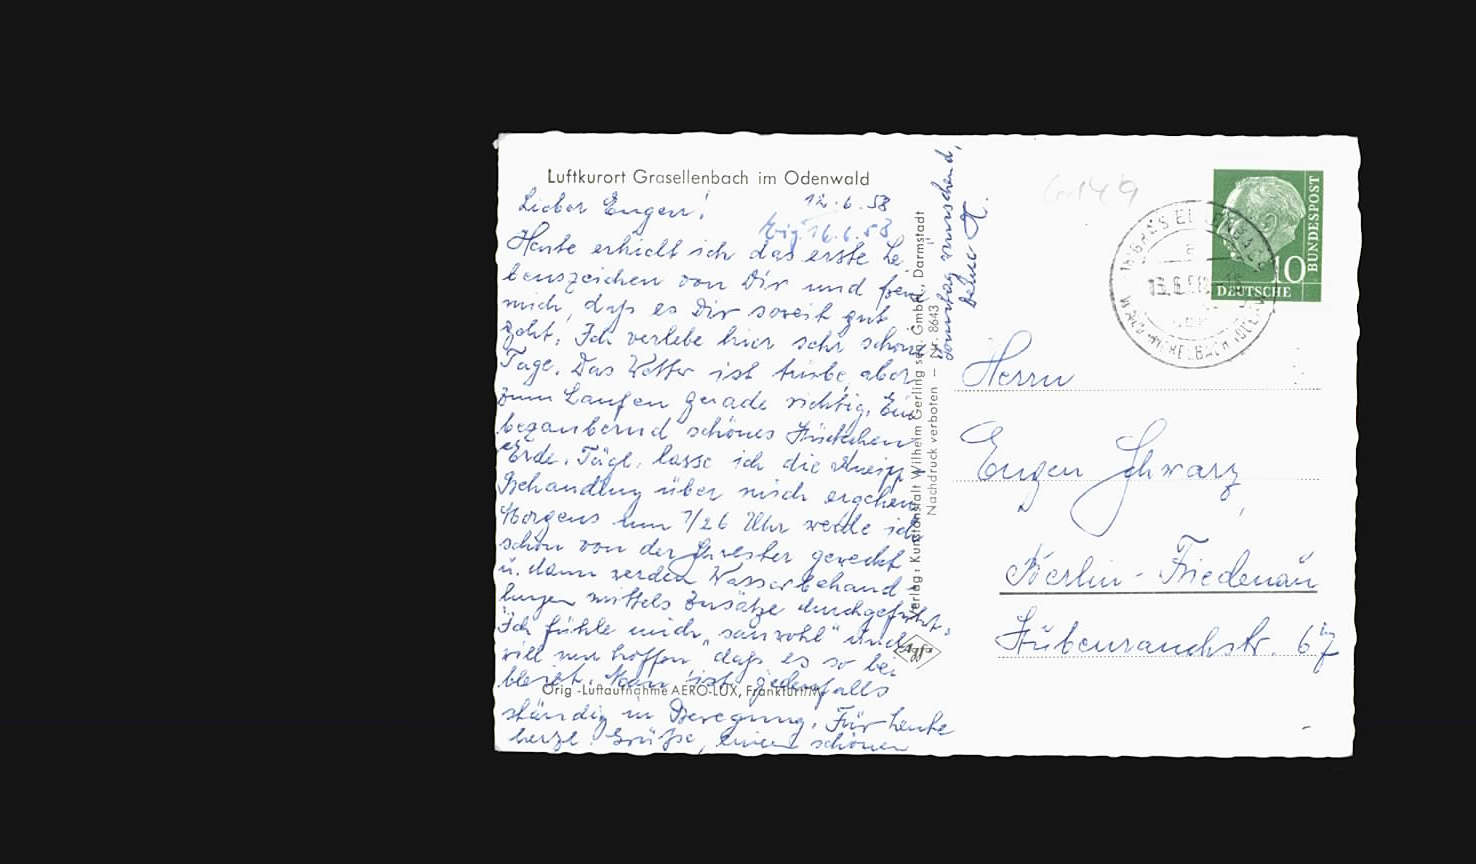 Luftkurort Grasellenbach im Odenwald
12.6.58
Lieber Eugen!
16.6.58
Heute erhielt ich das erste Le
benszeichen von Dir und freue
mich, daß es Dir soweit gut
geht. Ich verlebe hier sehr schöne
Tage. Das Wetter ist trübe, aber
zum Laufen gerade richtig. Ein
bezaubernd schönes Stückchen
Erde. Tägl. lasse ich die Kneipp-
Behandlung über mich ergehen
Morgens um 1/26 Uhr werde ich
schon von der Schwester geweckt
u. dann werden Wasserbehand-
lungen mittels Zusätze durchgeführt.
Ich fühle mich "sauwohl" und
will nun hoffen, daß es so bei
bleibt. Man ist jedenfalls
ständig in Bewegung. Für heute
herzl. Grüße, einen schönen
Sonntag wünschend,
Deine H.
Orig.-Luftaufnahme AERO-LUX, Frankfurt/M.
Verlag: Kunstanstalt Wilhelm Gerling sen. GmbH., Darmstadt
Nachdruck verboten — Nr. 8643
Agfa
DEUTSCHE BUNDESPOST
10
Herrn
Eugen Schwarz,
Berlin-Friedenau
Stubenrauchstr. 67